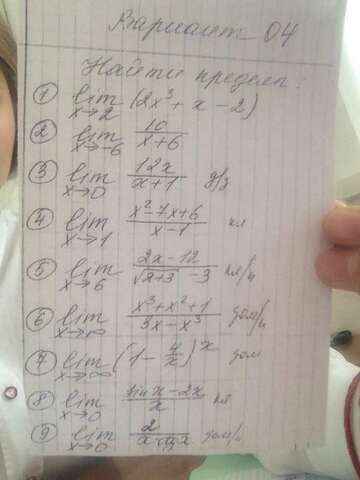 Вариант 04
Найти предел:
① lim x→2 (2x³ + x − 2)
② lim x→−6 10/(x+6)
③ lim x→0 12x/(x+1) д/з
④ lim x→1 (x²−7x+6)/(x−1) кл
⑤ lim x→6 (2x−12)/(√(x+3) −3) кл/и
⑥ lim x→∞ (x³+x²+1)/(3x−x³) дом/и
⑦ lim x→∞ (1 − 4/x)^x дом
⑧ lim x→0 (sin x − 2x)/x кл
⑨ lim x→0 дом/и